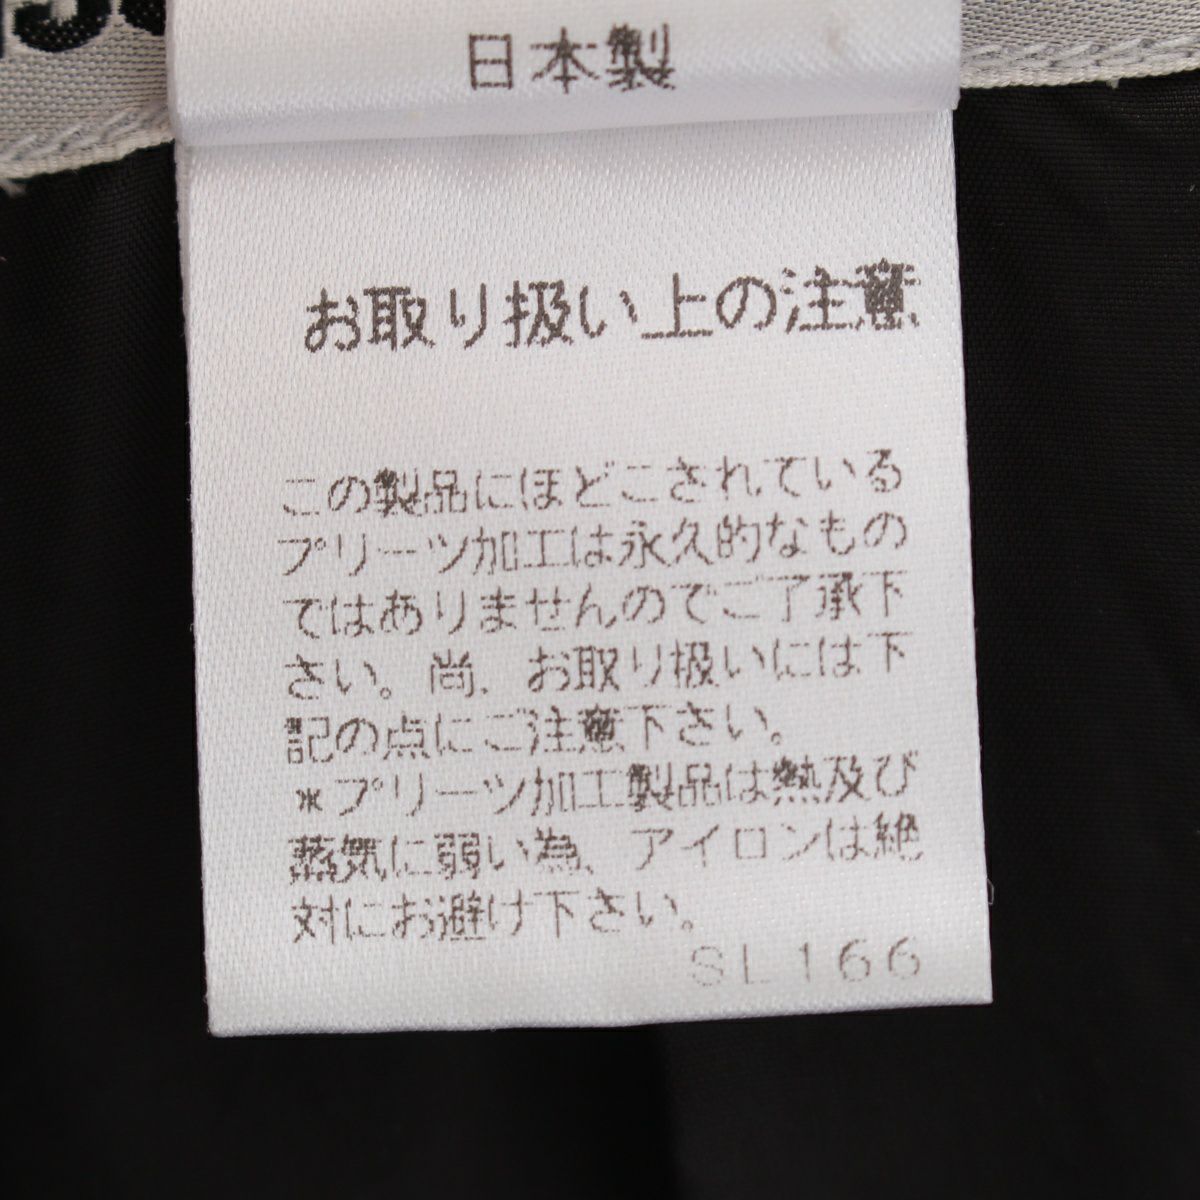 日本製
お取り扱い上の注意
この製品にほどこされている
プリーツ加工は永久的なもの
ではありませんのでご了承下
さい。尚、お取り扱いには下
記の点にご注意下さい。
*プリーツ加工製品は熱及び
蒸気に弱い為、アイロンは絶
対にお避け下さい。
SL166